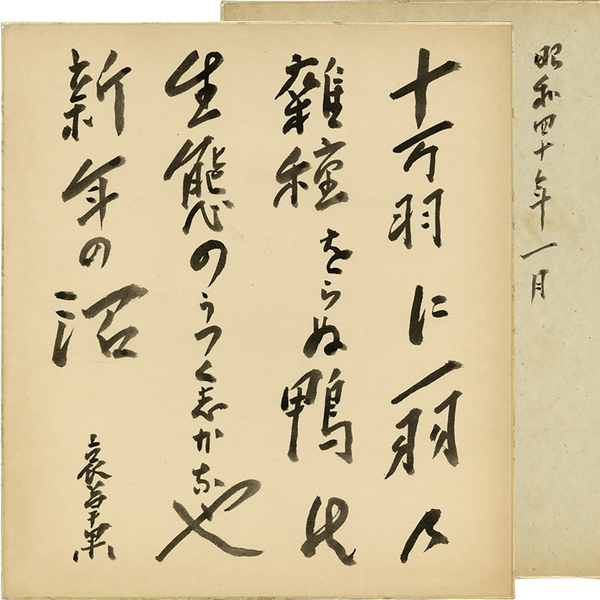 十万羽に一羽の
雜種をらぬ鴨の
生態のうつく志かなや
新年の沼
哀草果
昭和四十年一月